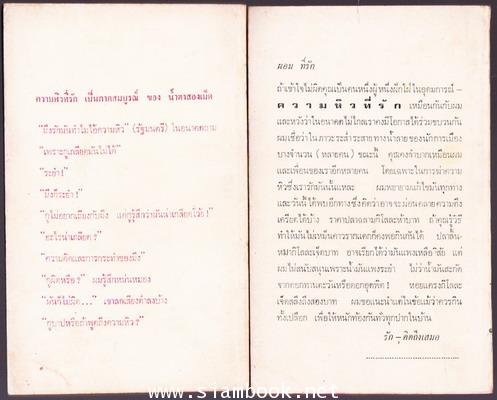 ความหิวที่รัก เป็นภาคสมบูรณ์ ของ น้ำตาสองเม็ด
"มึงรักมันทำไมไอ้ความหิว" (รัฐมนตรี) ในอนาคตถาม
"เพราะกูเกลียดมันไม่ได้"
"ระยำ!"
"มึงก็ระยำ!"
"กูไม่อยากเถียงกับมึง แต่กูรู้สึกว่ามันน่าเกลียดโว้ย!"
"อะไรน่าเกลียด?"
"ความคิดและการกระทำของมึง"
"กูผิดหรือ?" ผมรู้สึกหม่นหมอง
"มันก็ไม่ผิด..." เขาลดเสียงต่ำลงบ้าง
"กูบาปหรือถ้าพูดถึงความหิว?"
ผอม ที่รัก
ถ้าเข้าใจไม่ผิดคุณเป็นคนหนึ่งผู้หนึ่งฝักใฝ่ในอุดมการณ์ –
ความหิวที่รัก เหมือนกันกับผม
และหวังว่าในอนาคตไม่ไกลเราคงมีโอกาสได้ร่วมขบวนกัน
ผมเชื่อว่าในภาวะระส่ำระสายทางน้ำลายของนักการเมือง
บางจำนวน (หลายคน) ขณะนี้ คุณคงลำบากเหมือนผม
และเพื่อนของเราอีกหลายคน โดยเฉพาะในการฆ่าความ
หิวซึ่งเรารักมันนั้นแหละ ผมพยายามแก้ไขมันทุกทาง
และวันนี้ได้พบอีกทางซึ่งคิดว่าอาจจะผ่อนคลายความตึง
เครียดได้บ้าง ราคาปลาฉลามกิโลละห้าบาท ถ้าคุณรู้วิธี
ทำให้มันไม่เหม็นคาวรากแตกก็คงพอกินกันได้ ปลาลิ้น–
หมากิโลละเจ็ดบาท อาจเรียกได้ว่ามันแพงเหลือวิสัย แต่
ผมไม่สนับสนุนเพราะน้ำมันแพงระยำ ไม่ว่าน้ำมันสะกัด
จากดอกทานตะวันหรือดอกอุตพิด! หอยแครงกิโลละ
เจ็ดสลึงถึงสองบาท ผมขอแนะนำแต่ในข้อแม้ว่าควรกิน
ทั้งเปลือก เพื่อให้หนักท้องกันทั่วทุกปากในบ้าน
รัก – คิดถึงเสมอ
www.siambook.net